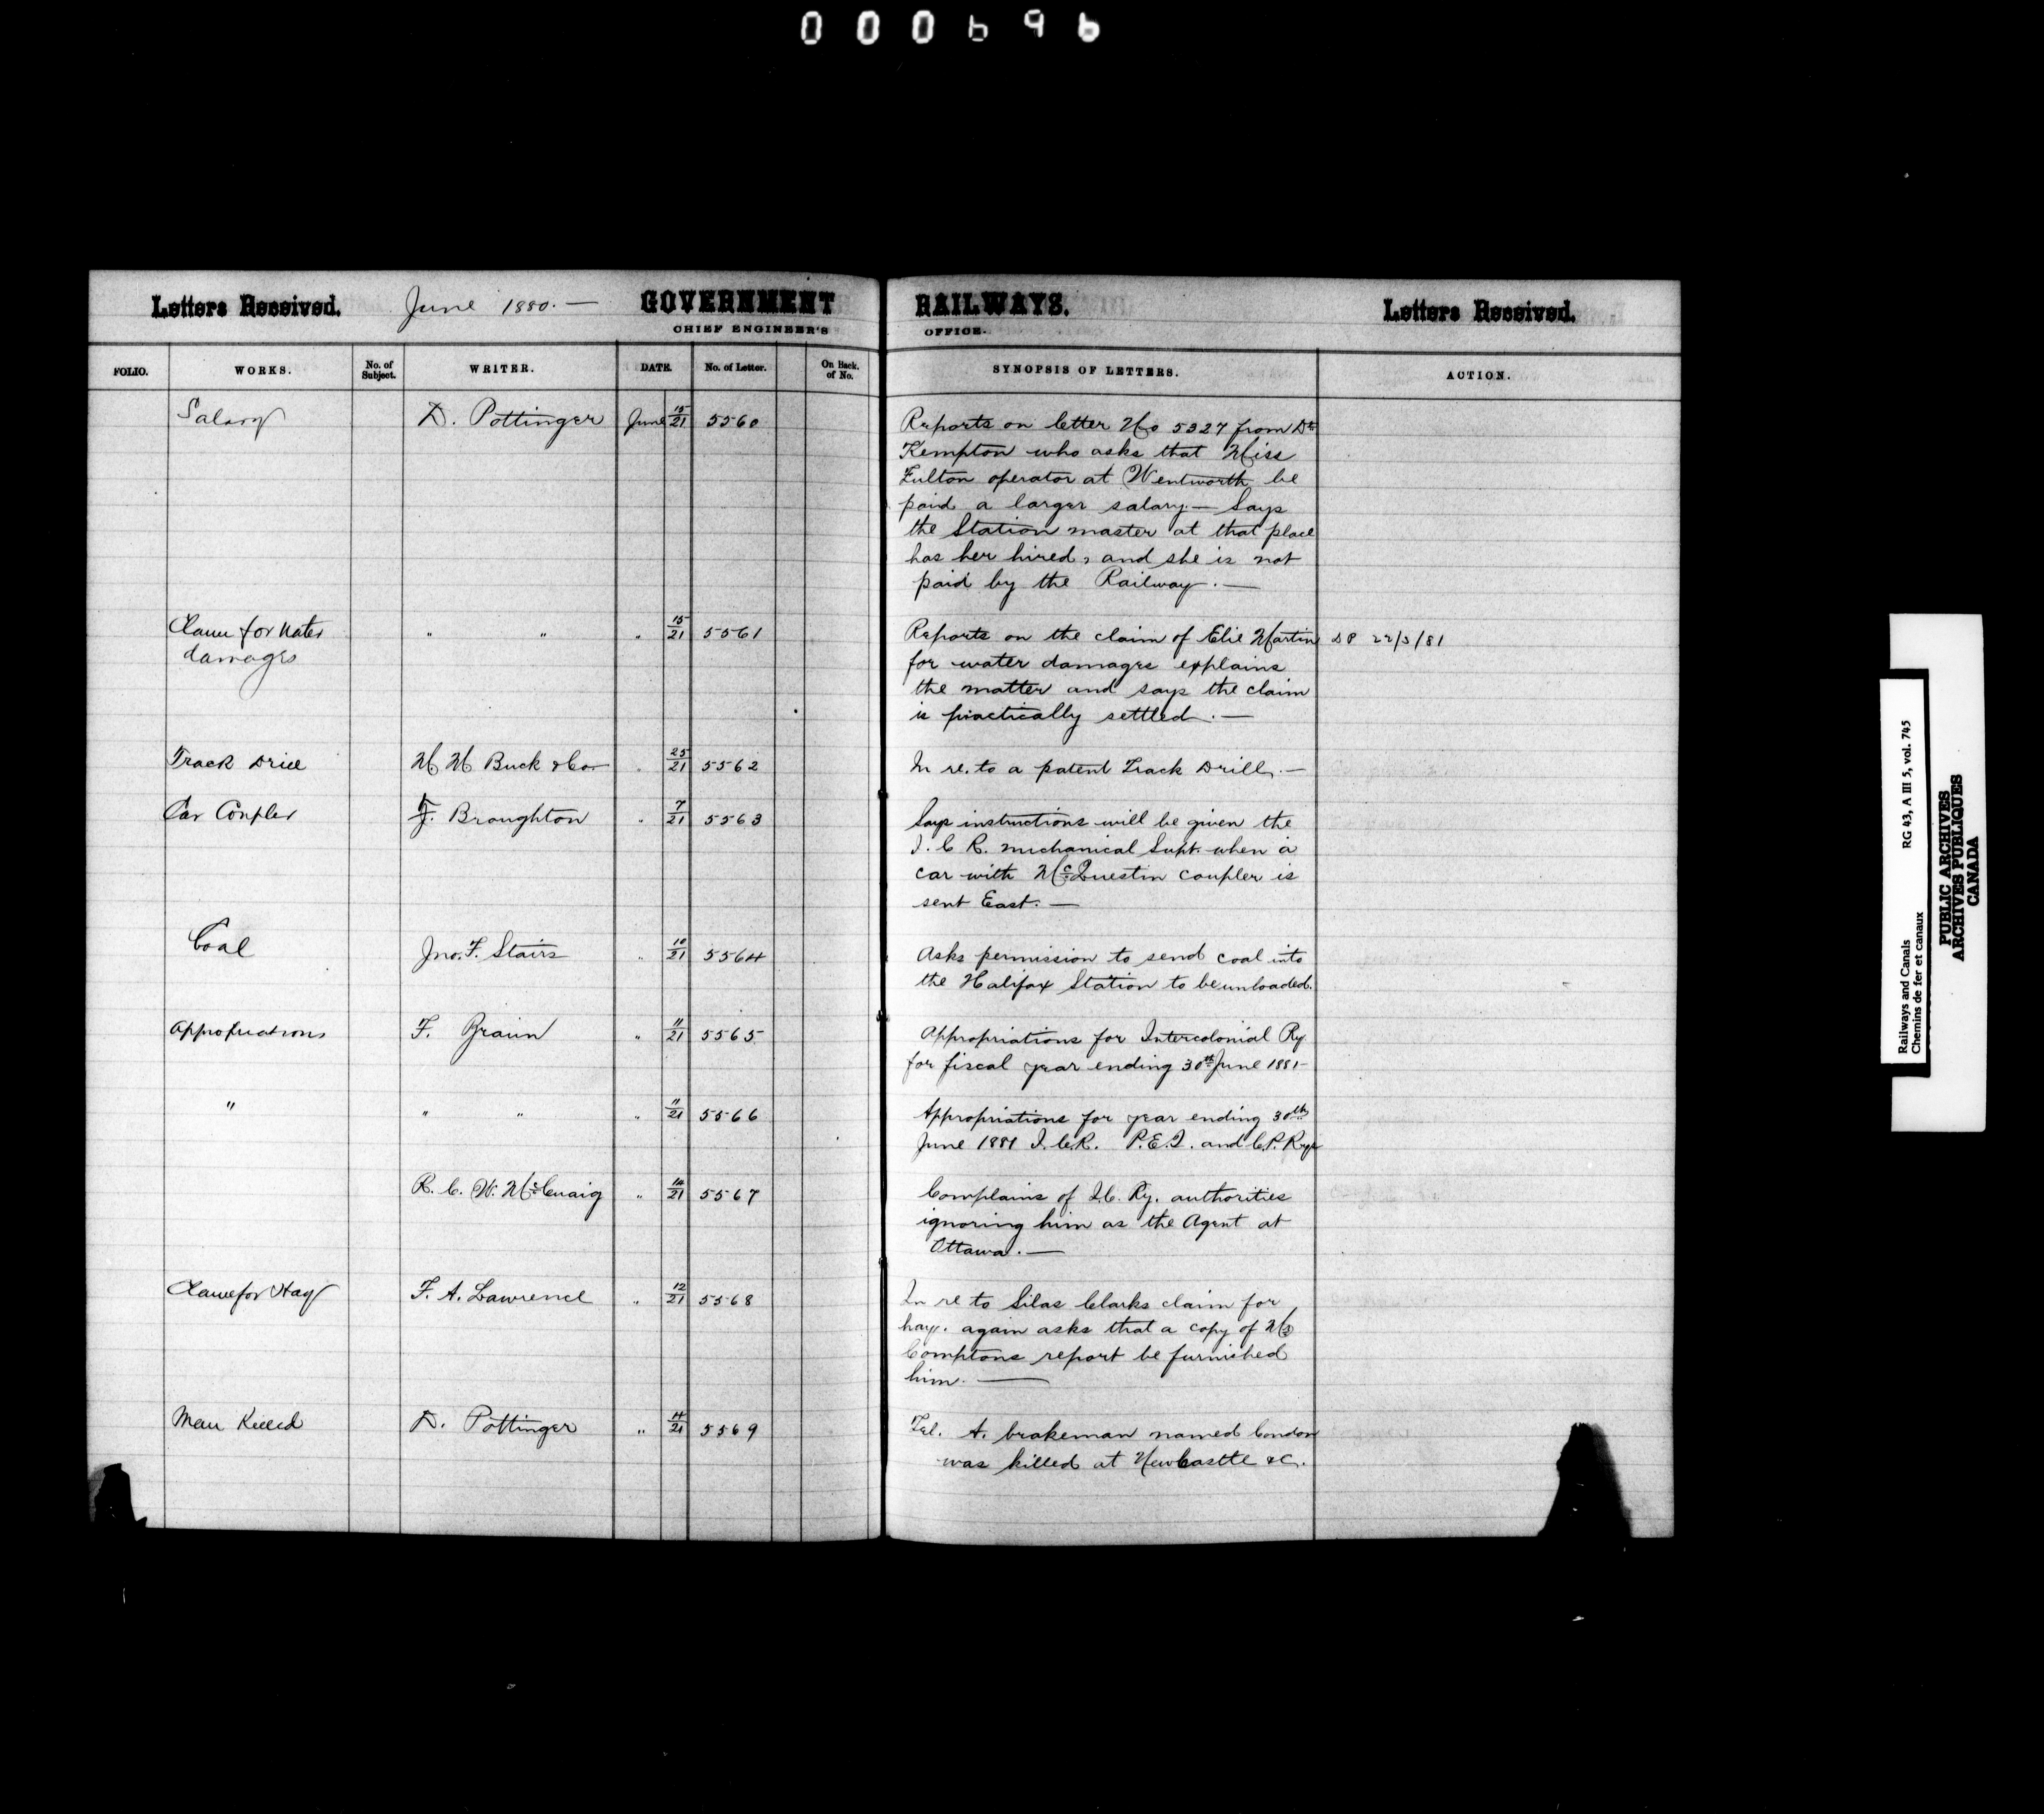 000696
Letters Received. June 1880. — GOVERNMENT RAILWAYS. Letters Received.
CHIEF ENGINEER'S OFFICE.
FOLIO. WORKS. No. of Subject. WRITER. DATE. No. of Letter. On Back of No. SYNOPSIS OF LETTERS. ACTION.
Salary D. Pottinger June 15/21 5560 Reports on letter No 5327 from Dr
Kempton who asks that Miss
Fulton operator at Wentworth be
paid a larger salary — Says
the Station master at that place
has her hired, and she is not
paid by the Railway. —
Claim for Water " " " 15/21 5561 Reports on the claim of Elie Martin DP 22/3/81
damages for water damages explains
the matter and says the claim
is practically settled. —
Track Drill M M Buck & Co. " 25/21 5562 In re. to a patent Track Drill. —
Car Coupler F. Broughton " 7/21 5563 Says instructions will be given the
I. C R. mechanical Supt. when a
car with McQuestin coupler is
sent East. —
Coal Jno. F. Stairs " 10/21 5564 Asks permission to send coal into
the Halifax Station to be unloaded.
Appropriations F. Braun " 11/21 5565 Appropriations for Intercolonial Ry
for fiscal year ending 30th June 1881 -
" " " " 11/21 5566 Appropriations for year ending 30th
June 1881 I.C.R. P.E.I. and C.P. Rys
R. C. W. McCuaig " 14/21 5567 Complains of I.C. Ry. authorities
ignoring him as the Agent at
Ottawa. —
Claim for Hay F. A. Lawrence " 12/21 5568 In re to Silas Clarks claim for
hay. again asks that a copy of Mr
Comptons report be furnished
him. —
Man Killed D. Pottinger " 14/21 5569 Tel. A. brakeman named Condon
was killed at Newcastle &c.
Railways and Canals RG 43, A III 5, vol. 745
Chemins de fer et canaux
PUBLIC ARCHIVES
ARCHIVES PUBLIQUES
CANADA